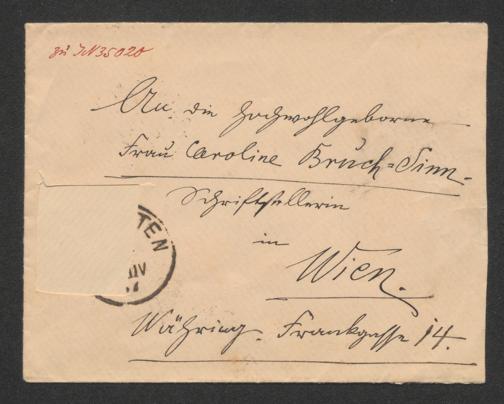 zu IN 35020
An die hochwohlgeborne
Frau Caroline Bruch-Sinn.
Schriftstellerin
in
Wien.
Währing. Frankgasse 14.
TEN